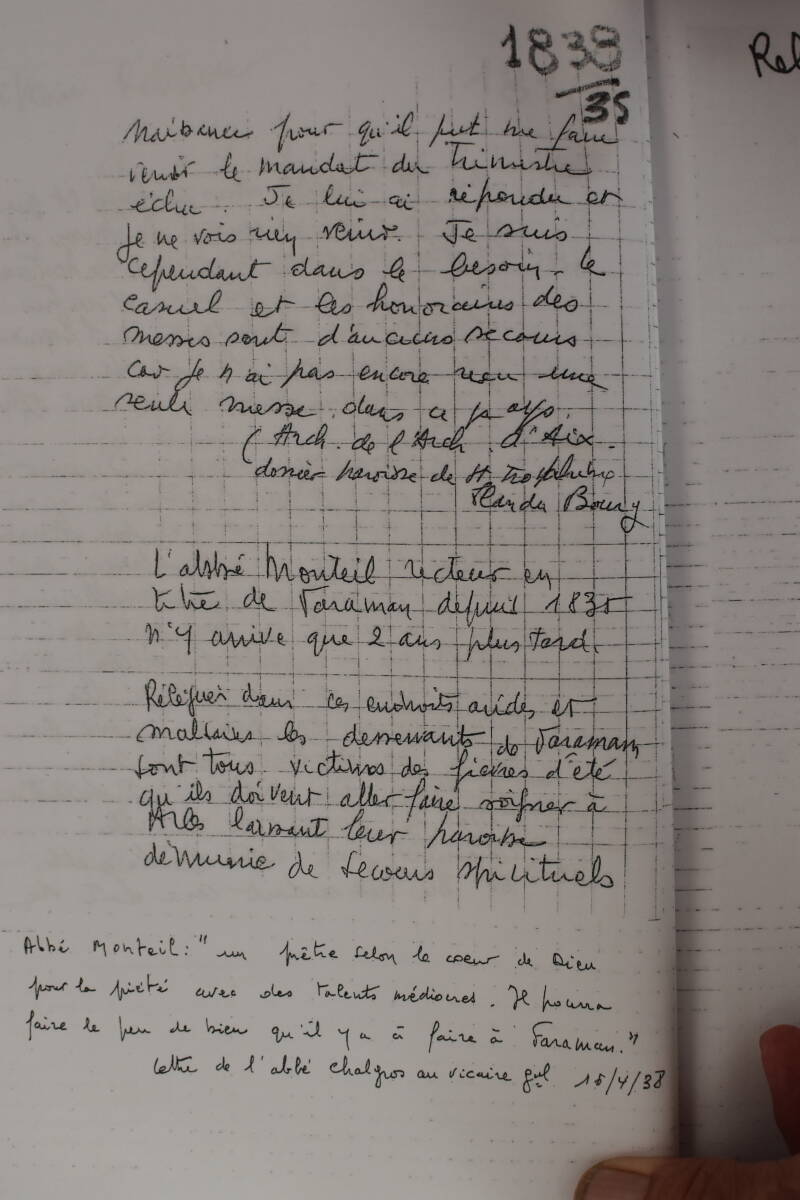 1838
35
Rel
naissance pour qu'il put me faire
venir le mandat du Trimestre
échu. Je lui ai répondu et
je ne vois rien venir. Je suis
cependant dans le besoin. le
casuel et les honoraires des
messes sont d'aucuns secours
car je n'ai pas encore reçu une
seule messe dans ce pays.
(Arch. de l'Arch. d'Aix.
dossier paroisse de St Trophime
Plan du Bourg
L'abbé Monteil recteur en
titre de Faraman depuis 1835
n'y arrive que 2 ans plus tard.
Rélégués dans ces endroits arides et
malsains les desservants de Faraman
sont tous victimes des fièvres d'été
qu'ils doivent aller faire soigner à
Arles laissant leur paroisse
démunie de secours spirituels
Abbé Monteil : "un prêtre selon le coeur de Dieu
pour la piété avec des talents médiocres. Il pourra
faire le peu de bien qu'il y a à faire à Faraman."
lettre de l'abbé Chalgros au vicaire gal 15/4/38